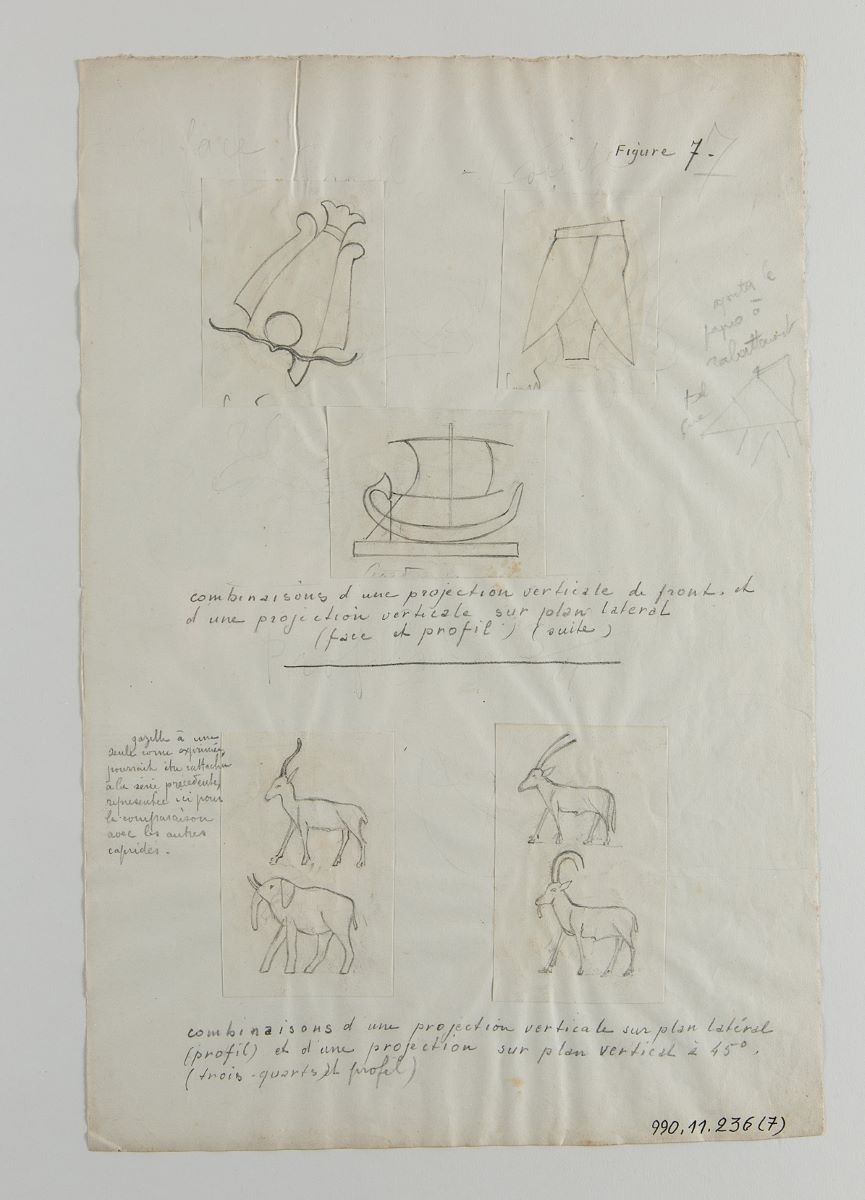 face
Figure 7.
7
ajouter le
à
rabattement
combinaisons d'une projection verticale de front. et
d'une projection verticale sur plan latéral
(face et profil) (suite)
gazelle à une
seule corne exprimée,
pourrait être rattachée
à la série precedente,
representée ici pour
la comparaison
avec les autres
capridés.
combinaisons d'une projection verticale sur plan latéral
(profil) et d'une projection sur plan vertical à 45°.
(trois-quarts) et profil)
990.11.236(7)